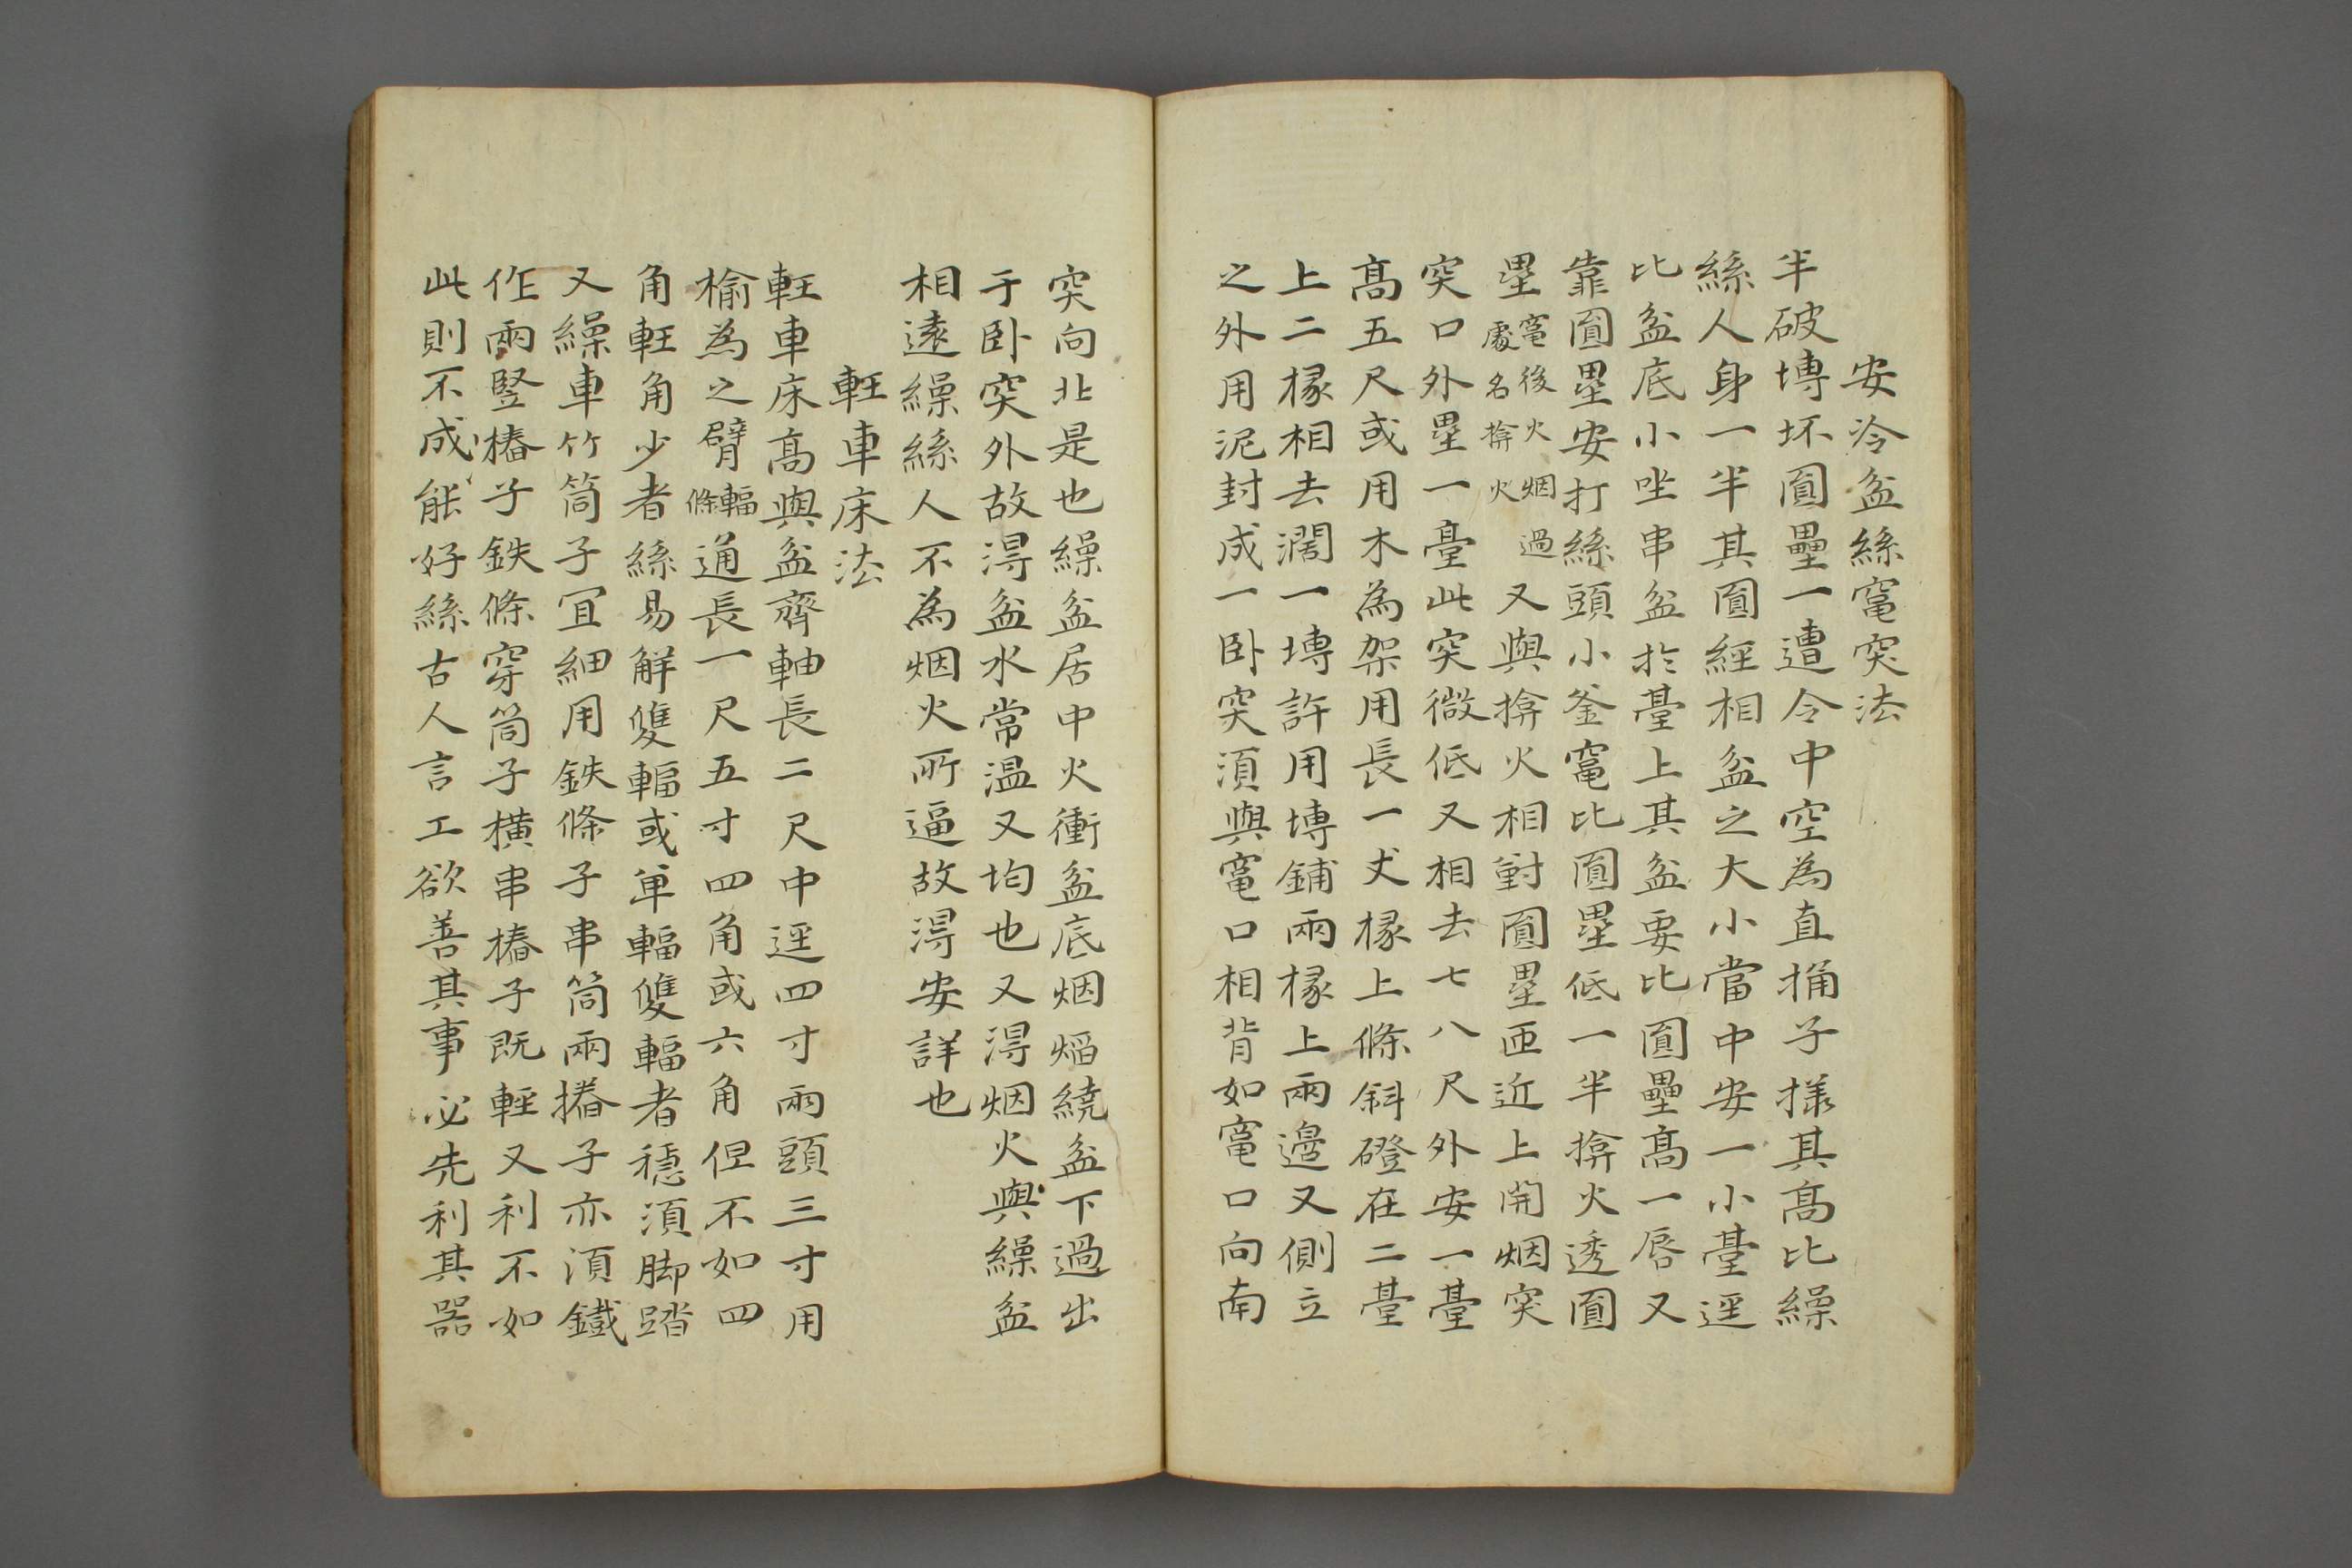 安冷盆絲竃突法
半破塼坏圎壘一遭令中空為直捅子㨾其髙比繰
絲人身一半其圎經相盆之大小當中安一小臺逕
比盆底小坐串盆於臺上其盆要比圎壘髙一唇又
靠圎壘安打絲頭小釜竃比圎壘低一半揜火透圎
壘竃後火烟過處名揜火又與揜火相對圎壘匝近上開烟突
突口外壘一臺此突微低又相去七八尺外安一臺
髙五尺或用木為架用長一丈椽上條斜磴在二臺
上二椽相去濶一塼許用塼鋪兩椽上兩邉又側立
之外用泥封成一卧突湏與竃口相背如竃口向南
突向北是也繰盆居中火衝盆底烟熖繞盆下過出
于卧突外故淂盆水常温又均也又淂烟火與繰盆
相逺繰絲人不為烟火所逼故淂安詳也
軠車床法
軠車床髙與盆齊軸長二尺中逕四寸兩頭三寸用
榆為之臂輻條通長一尺五寸四角或六角但不如四
角軠角少者絲易觧雙輻或单輻雙輻者穩湏脚踏
又繰車竹筒子宜細用鉄條子串筒兩摏子亦湏鐵
作兩竪樁子鉄條穿筒子橫串樁子既輕又利不如
此則不成能好絲古人言工欲善其事必先利其器